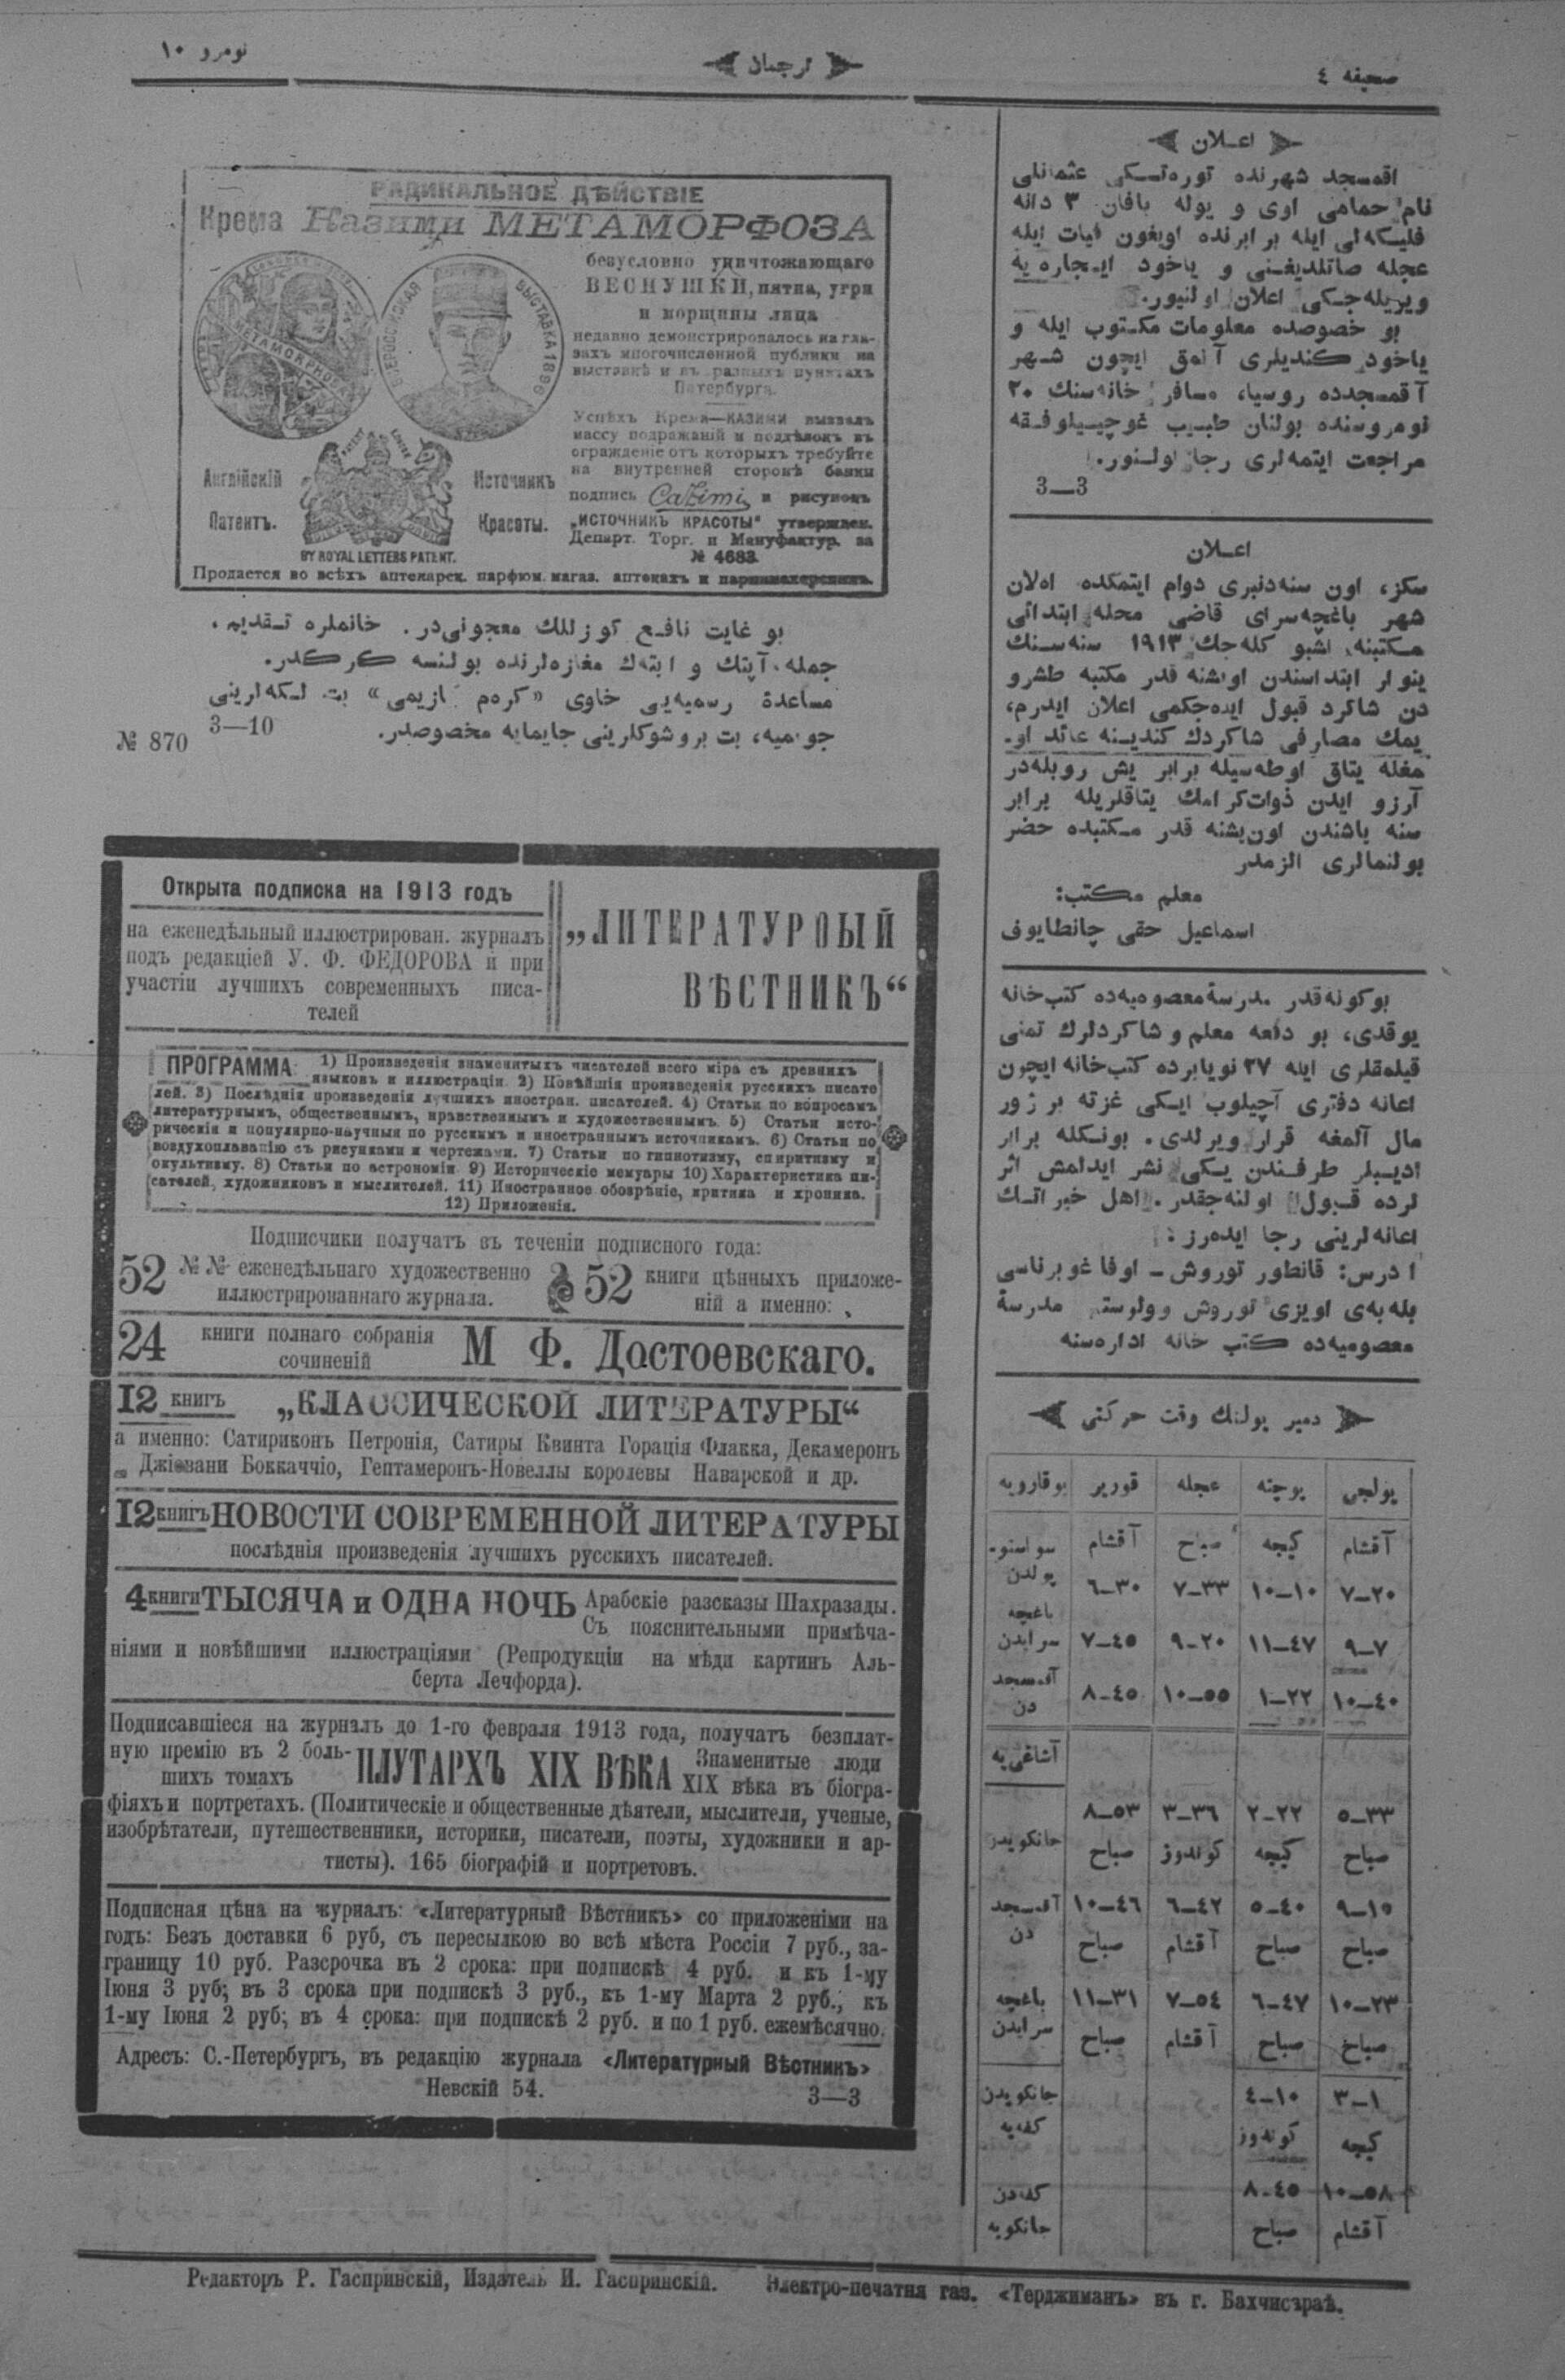 صحیفه ٤
ترجمان
نومرو ١٠
اعلان
اقمسجد شهرنده توره‌تسكی عثمانلی
نام حمامی اوی و یوله باقان ٣ دانه
فلیكه‌لی ایله برابرنده اویغون فیات ایله
عجله صاتلدیغنی و یاخود ایجاره‌یه
ویریله‌جكی اعلان اولنیور.
بو خصوصده معلومات مكتوب ایله و
یاخود كندیلری آلمق ایچون شهر
آقمسجدده روسیا، مسافر خانه‌سنك ٢٠
نومروسنده بولنان طبیب غوچیلوفقه
مراجعت ایتمه‌لری رجا اولنور.
3—3
اعلان
سكز، اون سنه‌دنبری دوام ایتمكده اولان
شهر باغچه‌سرای قاضی محله ابتدائی
مكتبنه، اشبو كله‌جك ١٩١٣ سنه‌سنك
ینوار ابتداسندن اونشنه قدر مكتبه طشرو
دن شاكرد قبول ایده‌جكمی اعلان ایدرم،
یمك مصارفی شاكردك كندیسنه عائد او-
مغله یتاق اوطه‌سیله برابر یش روبله‌در
آرزو ایدن ذوات‌كرامك یتاقلریله برابر
سنه باشندن اون‌بشنه قدر مكتبده حضر
بولنمالری الزمدر
معلم مكتب:
اسماعیل حقی چانطایوف
بوكونه‌قدر مدرسهٔ معصومیه‌ده كتب‌خانه
یوقدی، بو دفعه معلم و شاكردلرك تمنی
قیلمقلری ایله ٢٧ نویابرده كتب‌خانه ایچون
اعانه دفتری آچیلوب ایكی غزته بر ژور
مال آلمغه قرار ویرلدی. بونكله برابر
ادیبلر طرفندن یكی نشر ایدلمش اثر
لرده قبول اولنه‌جقدر. اهل خیراتك
اعانه‌لرینی رجا ایده‌رز:
ادرس: قانطور توروش — اوفا غوبرناسی
بله‌به‌ی اویزی توروش وولوستی مدرسهٔ
معصومیه‌ده كتب خانه اداره‌سنه
دمیر یولنك وقت حركتی
یولجی پوچته عجله قوریر یوقارویه
آقشام كیجه صباح آقشام سواستو-
٧—٢٠ ١٠—١٠ ٧—٣٣ ٦—٣٠ پولدن
٩—٧ ١١—٤٧ ٩—٢٠ ٧—٤٥ باغچه سرایدن
١٠—٤٠ ١—٢٢ ١٠—٥٥ ٨—٤٥ آقمسجد دن
آشاغی‌یه
٥—٣٣ ٢—٢٢ ٣—٣٦ ٨—٥٣
صباح كیجه كوندوز صباح جانكویدن
٩—١٥ ٥—٤٠ ٦—٤٢ ١٠—٤٦ آقمسجد
صباح صباح آقشام صباح دن
١٠—٢٣ ٦—٤٧ ٧—٥٤ ١١—٣١ باغچه
صباح صباح آقشام صباح سرایدن
٣—١ ٤—١٠ جانكویدن
كیجه كوندوز كفه‌یه
١٠—٥٨ ٨—٤٥ كفه‌دن
آقشام صباح جانكویه
РАДИКАЛЬНОЕ ДѢЙСТВІЕ
Крема Казими МЕТАМОРФОЗА
безусловно уничтожающаго
ВЕСНУШКИ, пятна, угри
и морщины лица
недавно демонстрировалось на гла-
захъ многочисленной публики на
выставкѣ и въ разныхъ пунктахъ
Петербурга.
Успѣхъ Крема—КАЗИМИ вызвалъ
массу подражаній и поддѣлокъ въ
огражденіе отъ которыхъ требуйте
на внутренней сторонѣ банки
подпись Cazimi и рисунокъ
„ИСТОЧНИКЪ КРАСОТЫ“ утвержден.
Департ. Торг. и Мануфактур. за
№ 4683.
METAMORPHOSE
ВСЕРОССІЙСКАЯ ВЫСТАВКА 1896
Англійскій Патентъ.
Источникъ Красоты.
BY ROYAL LETTERS PATENT.
Продается во всѣхъ аптекарск. парфюм. магаз. аптекахъ и парикмахерскихъ.
بو غایت نافع كوزللك معجونی‌در. خانملره تقدیم،
جمله، آپتك و اپته‌ك مغازه‌لرنده بولنسه كركدر.
مساعدهٔ رسمیه‌یی حاوی «كره‌م كازیمی» بت لكه‌لرینی
جویمیه، بت بروشوكلرینی جایمایه مخصوصدر.
3—10
№ 870
Открыта подписка на 1913 годъ
на еженедѣльный иллюстрирован. журналъ
подъ редакціей У. Ф. ФЕДОРОВА и при
участіи лучшихъ современныхъ писа-
телей
„ЛИТЕРАТУРНЫЙ
ВѢСТНИКЪ“
ПРОГРАММА: 1) Произведенія знаменитыхъ писателей всего міра съ древнихъ
языковъ и иллюстраціи. 2) Новѣйшія произведенія русскихъ писате
лей. 3) Послѣднія произведенія лучшихъ иностран. писателей. 4) Статьи по вопросамъ
литературнымъ, общественнымъ, нравственнымъ и художественнымъ. 5) Статьи исто-
рическія и популярно-научныя по русскимъ и иностраннымъ источникамъ. 6) Статьи по
воздухоплаванію съ рисунками и чертежами. 7) Статьи по гипнотизму, спиритизму и
окультизму. 8) Статьи по астрономіи. 9) Историческіе мемуары 10) Характеристика пи-
сателей, художниковъ и мыслителей. 11) Иностранное обозрѣніе, критика и хроника.
12) Приложенія.
Подписчики получатъ въ теченіи подписного года:
52 №№ еженедѣльнаго художественно
иллюстрированнаго журнала.
52 книги цѣнныхъ приложе-
ній а именно:
24 книги полнаго собранія
сочиненій М Ф. Достоевскаго.
12 книгъ „КЛАССИЧЕСКОЙ ЛИТЕРАТУРЫ“
а именно: Сатириконъ Петронія, Сатиры Квинта Горація Флакка, Декамеронъ
Джіовани Боккаччіо, Гептамеронъ-Новеллы королевы Наварской и др.
12 книгъ НОВОСТИ СОВРЕМЕННОЙ ЛИТЕРАТУРЫ
послѣднія произведенія лучшихъ русскихъ писателей.
4 книги ТЫСЯЧА и ОДНА НОЧЬ Арабскіе разсказы Шахразады.
Съ пояснительными примѣча-
ніями и новѣйшими иллюстраціями (Репродукціи на мѣди картинъ Аль-
берта Лечфорда).
Подписавшіеся на журналъ до 1-го февраля 1913 года, получатъ безплат-
ную премію въ 2 боль-
шихъ томахъ ПЛУТАРХЪ XIX ВѢКА Знаменитые люди
XIX вѣка въ біогра-
фіяхъ и портретахъ. (Политическіе и общественные дѣятели, мыслители, ученые,
изобрѣтатели, путешественники, историки, писатели, поэты, художники и ар-
тисты). 165 біографій и портретовъ.
Подписная цѣна на журналъ: «Литературный Вѣстникъ» со приложеніми на
годъ: Безъ доставки 6 руб, съ пересылкою во всѣ мѣста Россіи 7 руб., за-
границу 10 руб. Разсрочка въ 2 срока: при подпискѣ 4 руб. и къ 1-му
Іюня 3 руб; въ 3 срока при подпискѣ 3 руб., къ 1-му Марта 2 руб., къ
1-му Іюня 2 руб; въ 4 срока: при подпискѣ 2 руб. и по 1 руб. ежемѣсячно.
Адресъ: С.-Петербургъ, въ редакцію журнала «Литературный Вѣстникъ»
Невскій 54.
3—3
Редакторъ Р. Гаспринскій, Издатель И. Гаспринскій. Электро-печатня газ. «Терджиманъ» въ г. Бахчисараѣ.